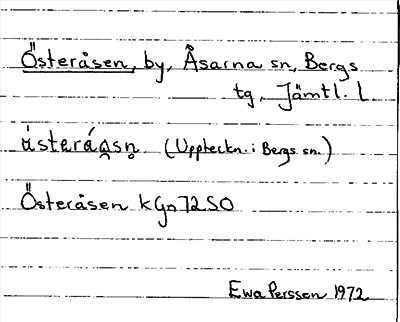 Österåsen, by, Åsarna sn, Bergs
tg, Jämtl. l
(Uppteckn. i Bergs sn.)
Österåsen kGn72SO
Ewa Persson 1972